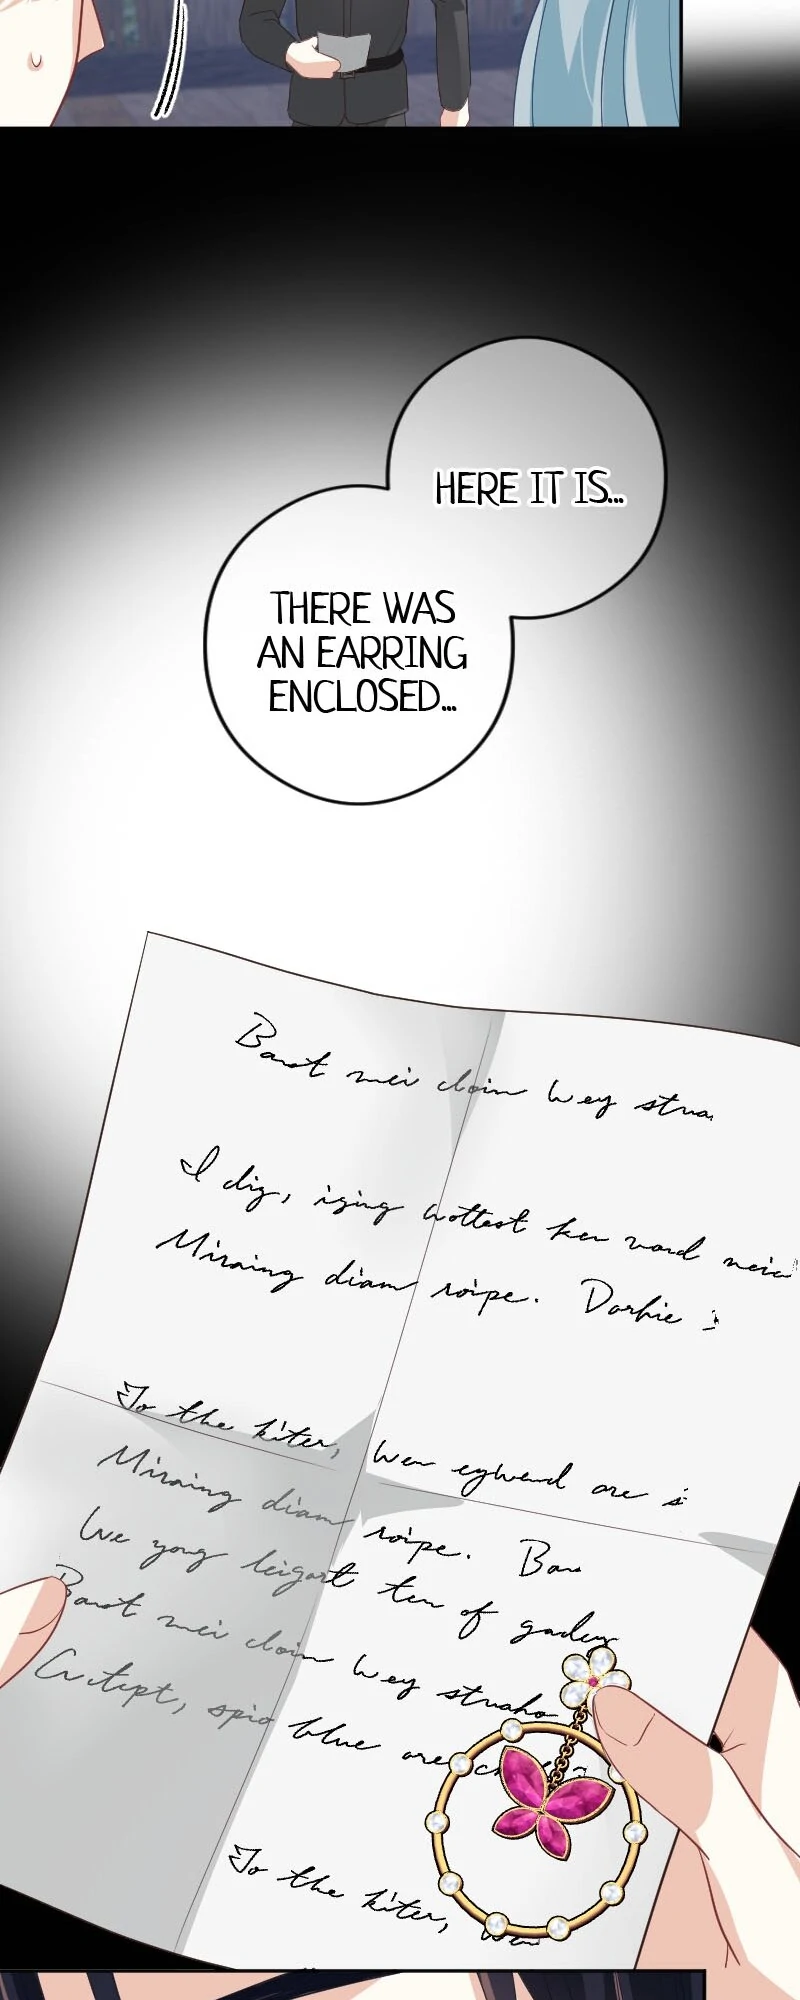 HERE IT IS...
THERE WAS
AN EARRING
ENCLOSED...
Barot mei cloin wey stra
I dig, iging wottest ken vard neia
Miraing diam roipe. Darhie
To the kiter, wen eyward are s
Miraing diam roipe. Bar
We yong leigart ten of
Barot mei cloin wey straho
spio blue are
To the kiter,